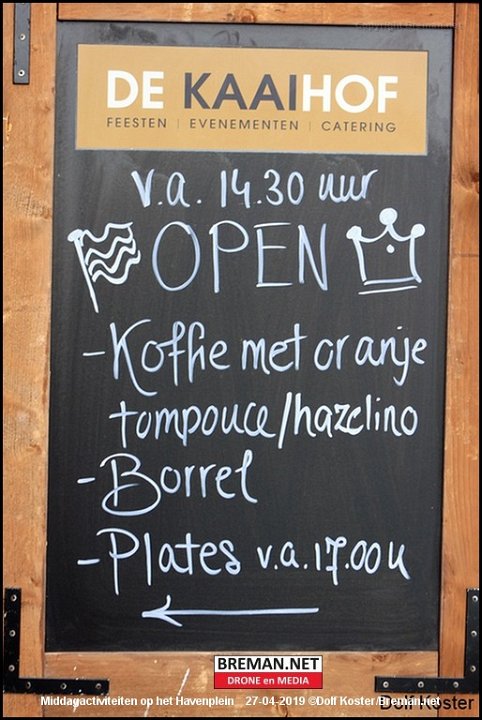 DE KAAIHOF
FEESTEN | EVENEMENTEN | CATERING
v.a. 14.30 uur
OPEN
- Koffie met oranje
tompouce/hazelino
- Borrel
- Plates v.a. 17.00 u
BREMAN.NET
DRONE en MEDIA
Dolf Koster
Middagactiviteiten op het Havenplein 27-04-2019 ©Dolf Koster/Breman.net